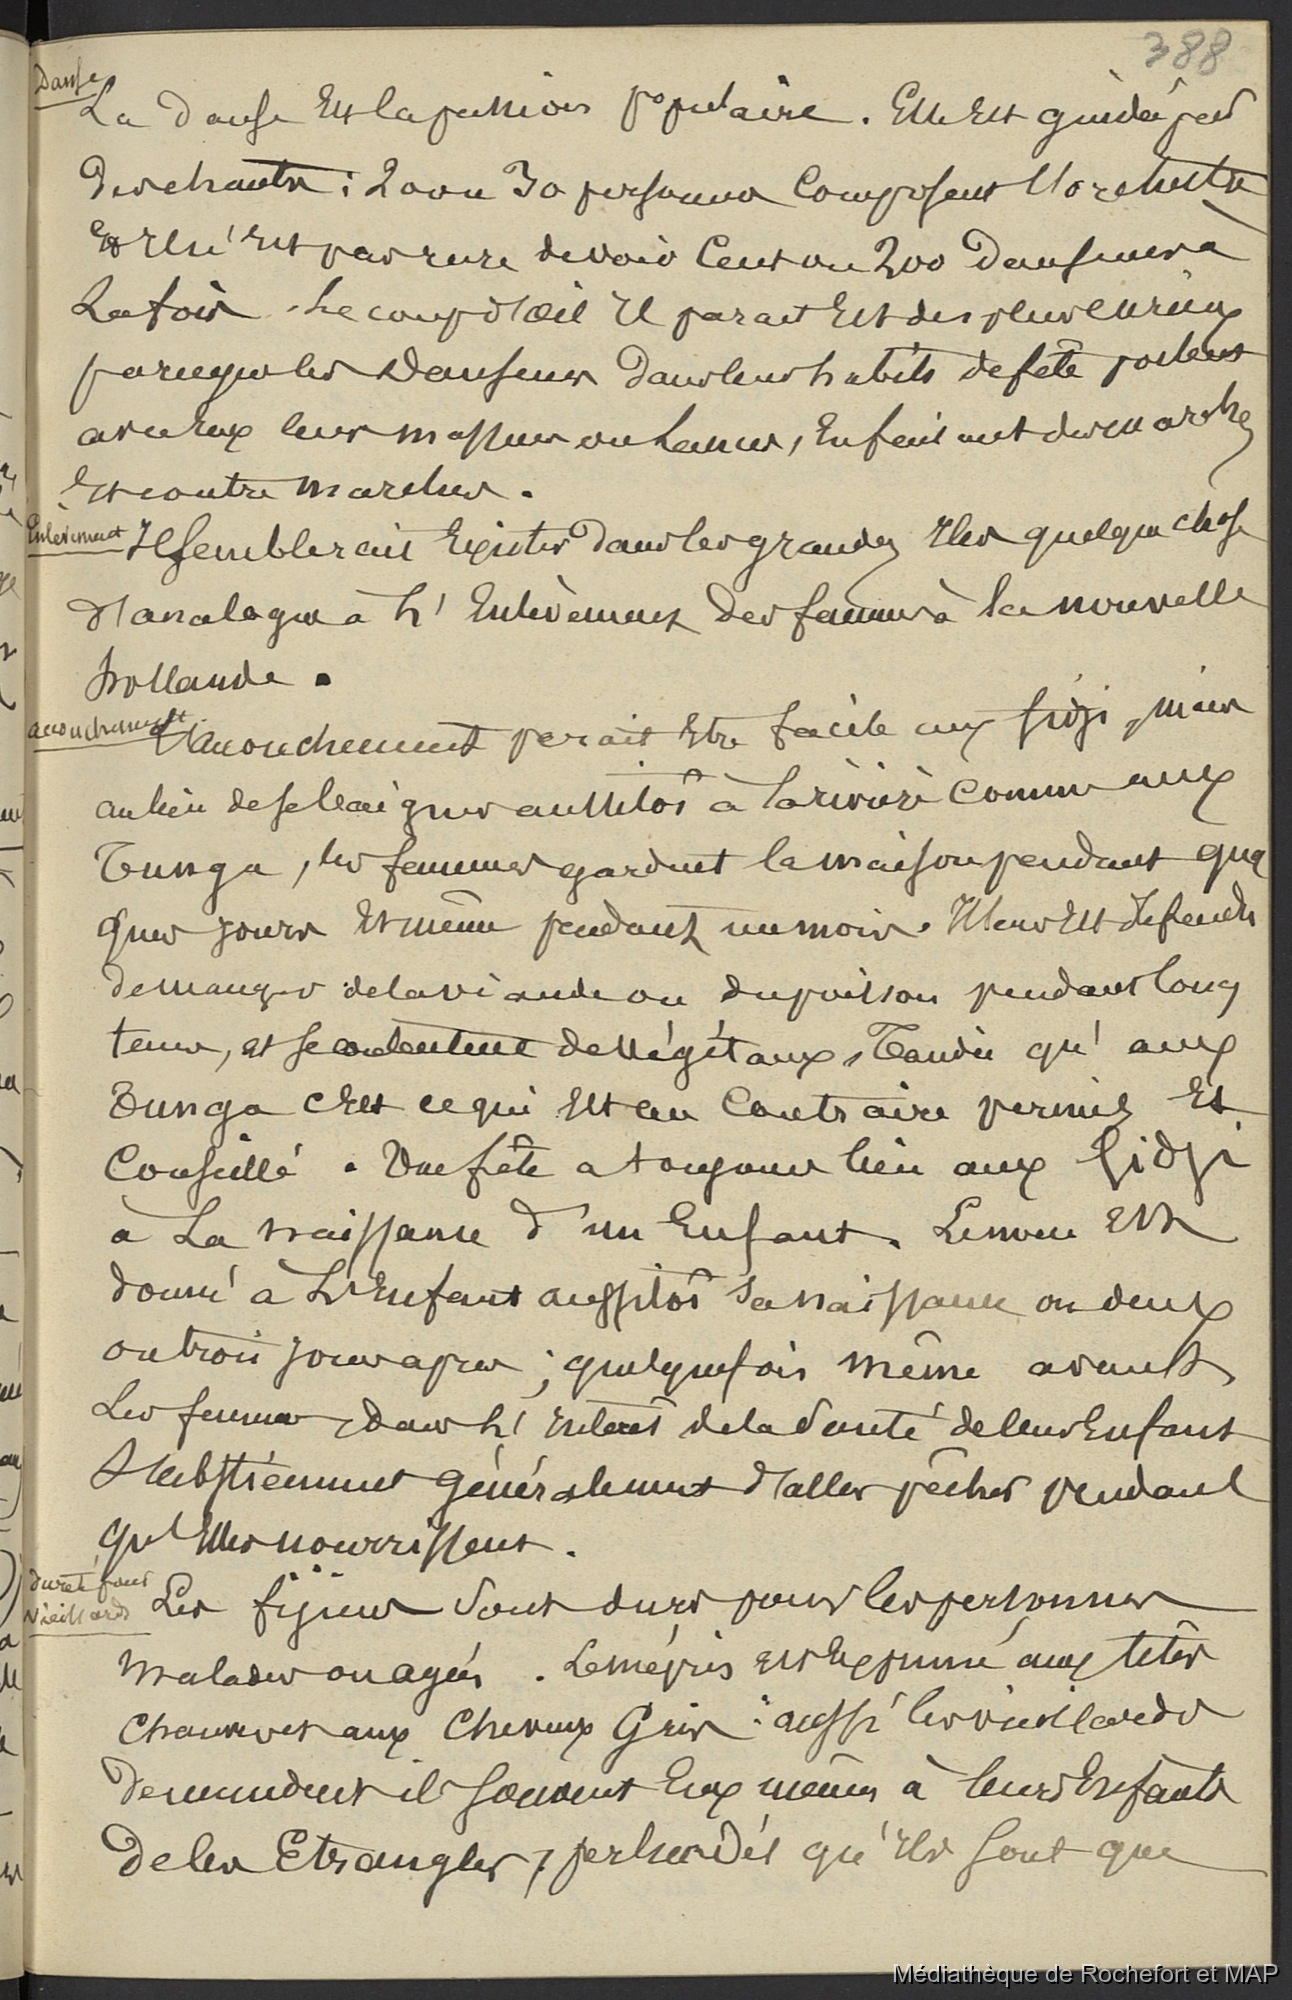 388
Danse
La danse Est la passion populaire. Elle Est guidée par
des chants : 20 ou 30 personnes Composent l'orchestre
Et Il n'Est pas rare de voir Cent ou 200 Danseurs à
La fois. Le coup d'œil Il parait Est des plus curieux
parceque les Danseurs Dans leurs habits de fête portent
avec Eux leurs massues ou Lances, En faisant des marches
Et contre marches.
Enlèvement
Il semblerait Exister Dans les grandes Iles quelque chose
d'analogue à L'Enlèvement des femmes à la nouvelle
hollande.
accouchement
L'accouchement parait Etre facile aux fidji, mais
au lieu de se baigner aussitôt à la rivière Comme aux
Tunga, les femmes gardent la maison pendant quel
ques jours Et même pendant un mois. Il leur Est défendu
de manger de la viande ou du poisson pendant long
tems, et se contentent de végétaux, Tandis qu'aux
Tunga c'Est ce qui Est au Contraire permis Et
Conseillé. Une fête a toujours lieu aux fidji
à La naissance d'un Enfant. Le nom Est
donné à L'Enfant aussitôt sa naissance ou deux
ou trois jours après ; quelquefois même avant.
Les femmes, dans L'intérêt de la Santé de leur Enfant
S'abstiennent généralement d'aller pêcher pendant
qu'Elles nourrissent.
dureté pour
vieillards
Les fijiens Sont durs pour les personnes
Malades ou agées. Le mépris Est Exprimé aux têtes
Chauves et aux Cheveux Gris : aussi les vieillards
Demandent il souvent Eux mêmes à leurs Enfants
De les Etrangler, persuadés qu'Ils sont que
Médiathèque de Rochefort et MAP